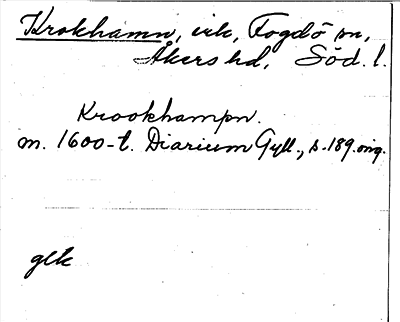 Krokhamn, vik, Fogdö sn,
Åkers hd, Söd. l.
Krookhampn.
m. 1600-t. Diarium Gyll., s. 189. orig.
gek